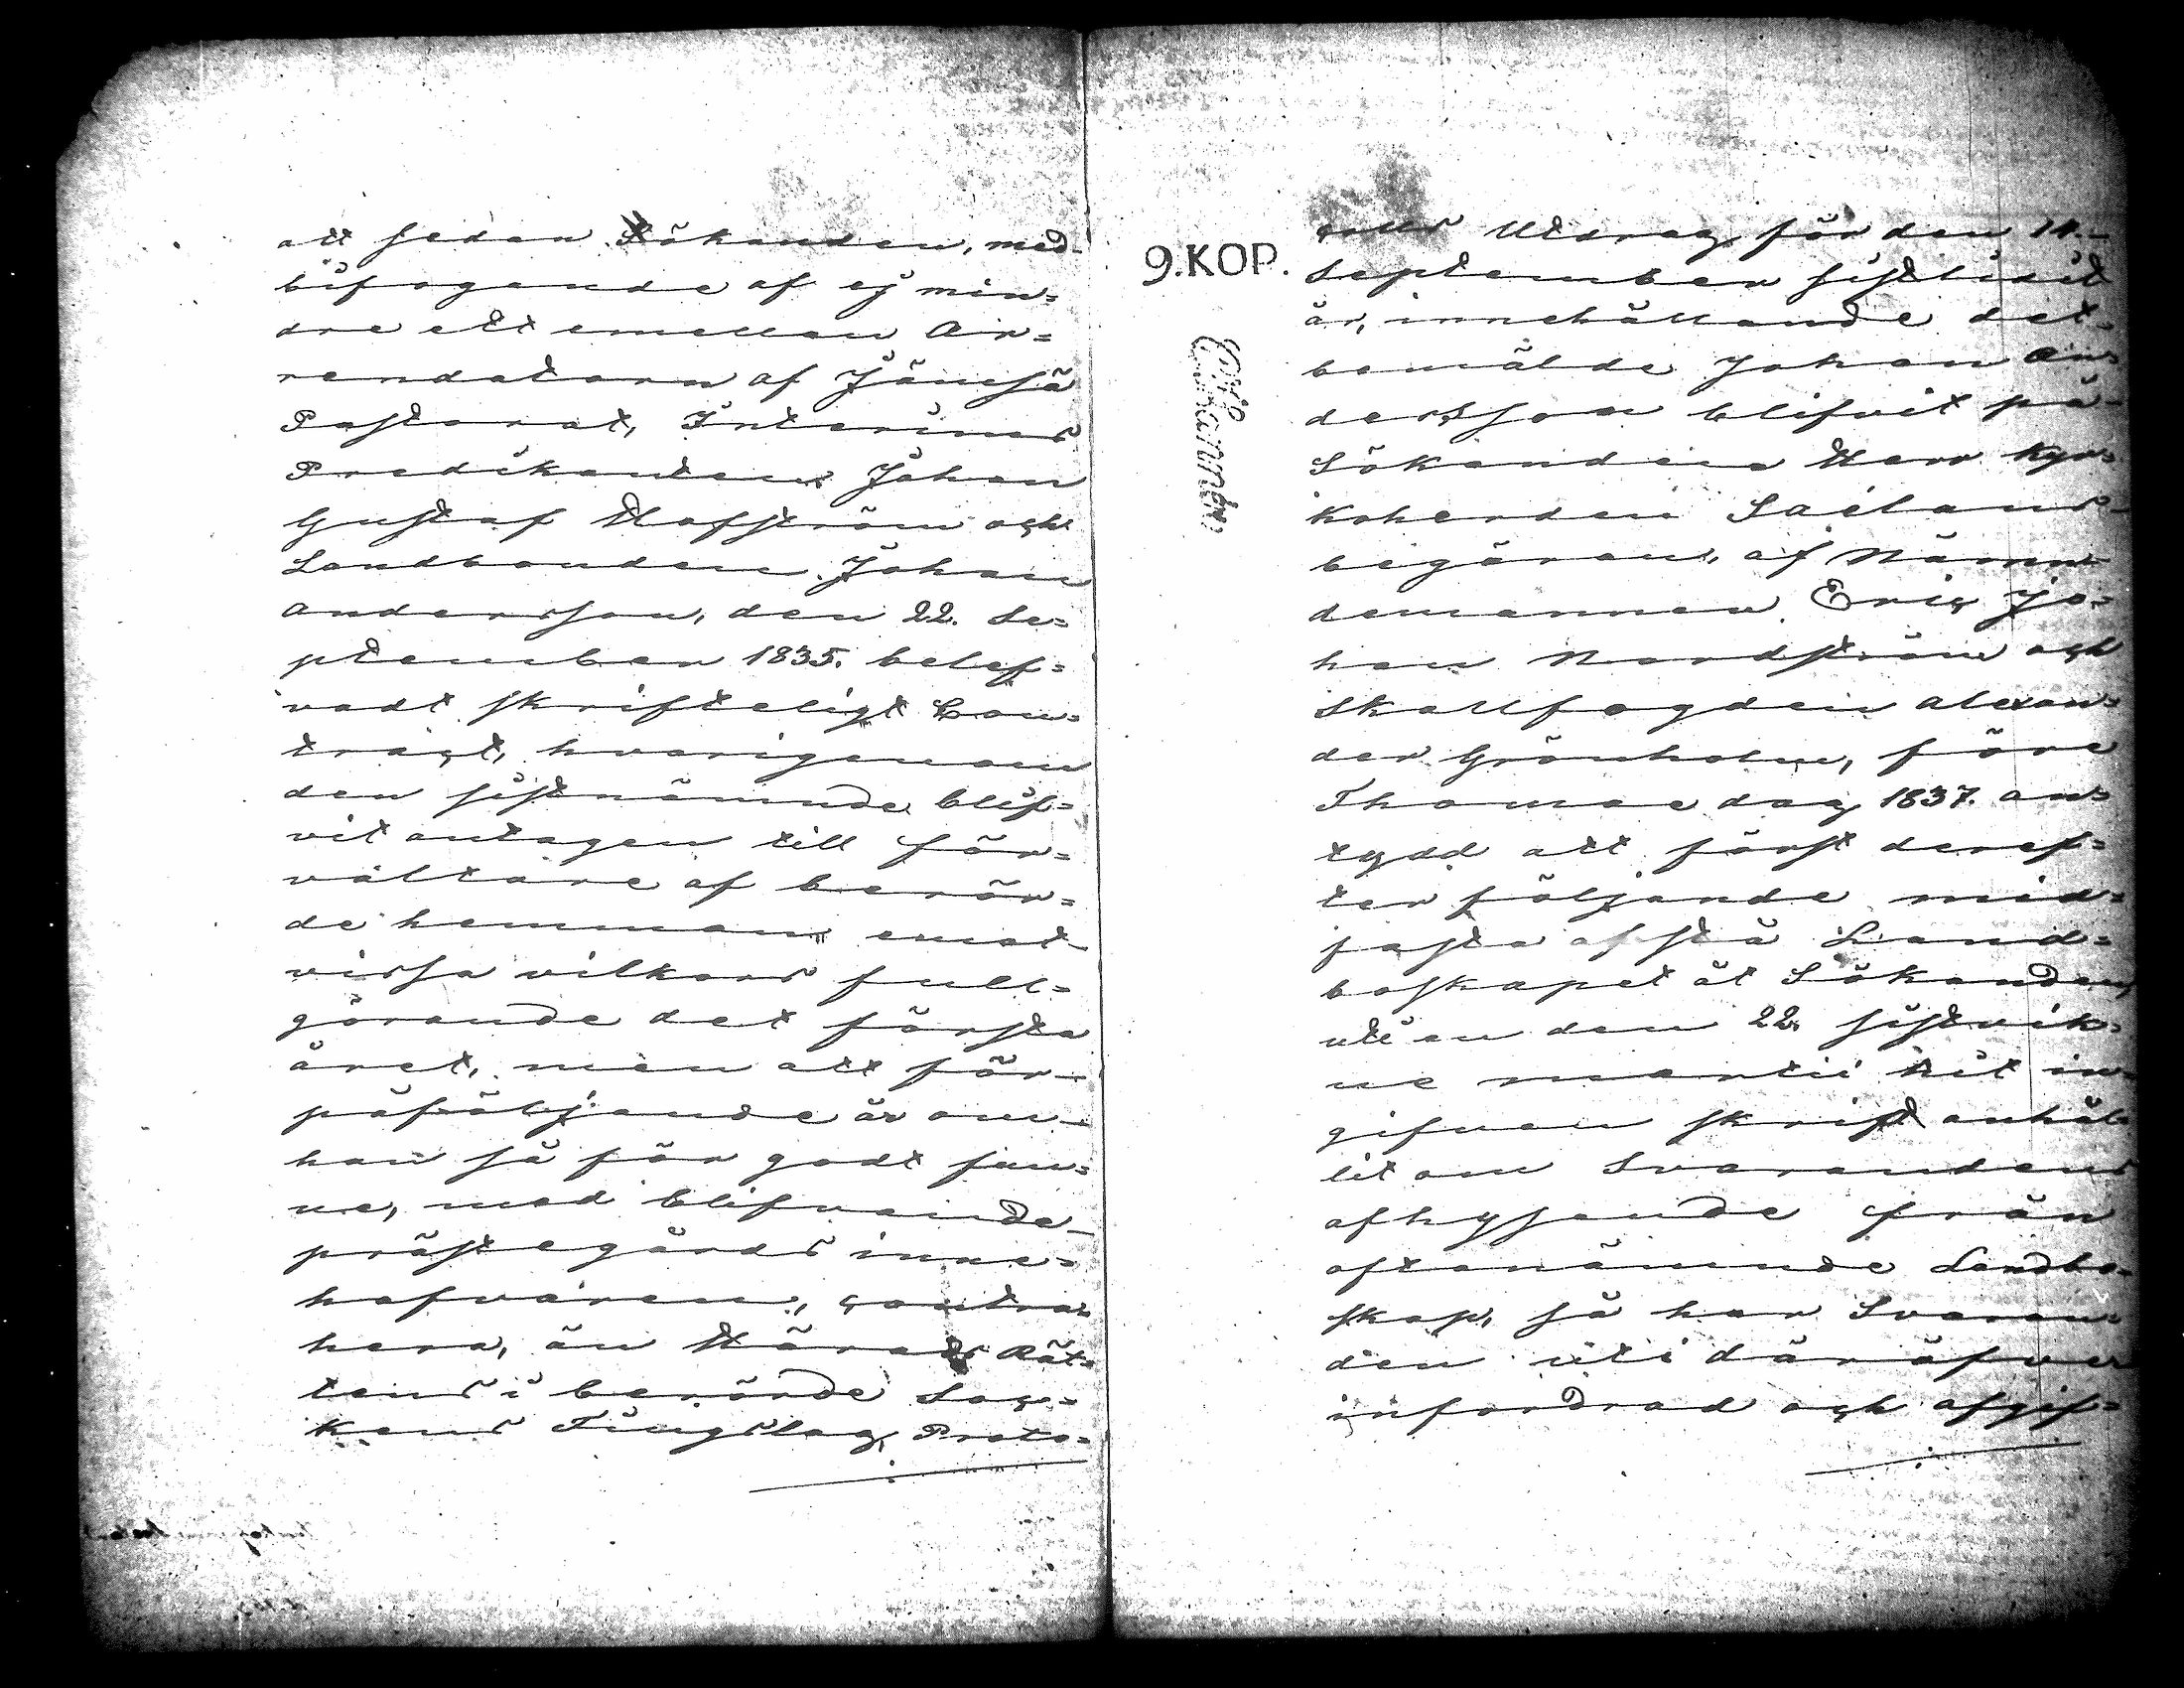 att sedan Sökanden, med
bifogande af ej min=
dre ett emellan Ar=
rendatorn af Jämsä
Pastorat, Interims
Predikanten Johan
Gustaf Hafström och
Landbonden Johan
Andersson, den 22. Se=
ptember 1835. belef=
vadt skrifteligt Con=
tract, hvarigenom
den sistnämnde blif=
vit antagen till för=
valtare af berör=
de hemman emot
vissa vilkors full=
görande det första
året, men att för
påföljande år om
han så för godt fun=
ne, med blifvande
prästegårds inne=
hafvaren, contra=
hera, än Härads Rät=
tens i berörde Soc=
kens Tingslag, Proto=
9.KOP.
colls Utdrag för den 14.
September sistledit
år, innehållande det
bemälde Johan An=
dersson blifvit på
Sökandens Herr Kyr=
koherden Sailans
begäran, af Nämn=
demannen Eric Jo=
han Nordström och
Skallfogden Alexan=
der Grönholm, före
Thomae dag 1837. an=
tydd att först deref=
ter följande mid=
fasta afstå Land=
boskapet åt Sökanden,
uti en den 22. sistvik=
ne martii hit in=
gifven skrift anhål=
lit om Svarandens
afhysande från
oftanämnde Landbo=
skap, så har Svaran=
den uti däröfver
infordrad och afgif=